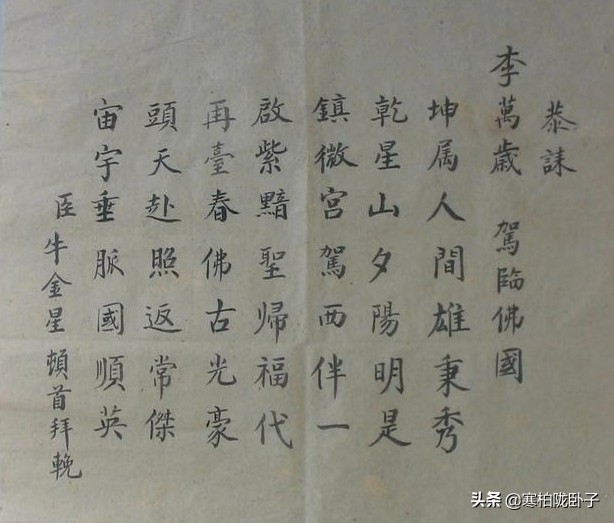 恭誄
李萬歲　駕臨佛國
坤属人間雄秉秀
乾星山夕陽明是
鎮微宮駕西伴一
啟紫黯聖歸福代
再臺春佛古光豪
頭天赴照返常傑
宙宇垂脈國順英
臣牛金星頓首拜輓
头条 @寒柏陇卧子